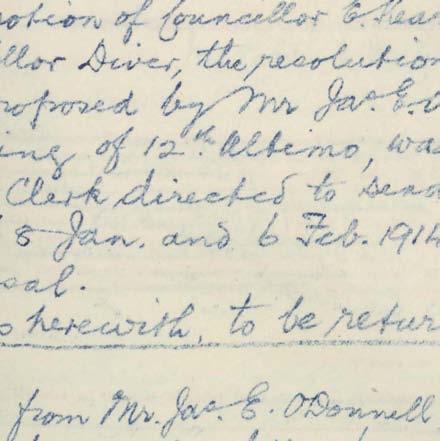 motion of Councillor E. Kea
llor Diver, the resolution
roposed by Mr Jas. E. O
ing of 12th Ultimo, was
Clerk directed to send
8 Jan. and 6 Feb. 1914
sal.
s herewith, to be retur
from Mr. Jas. E. O'Donnell